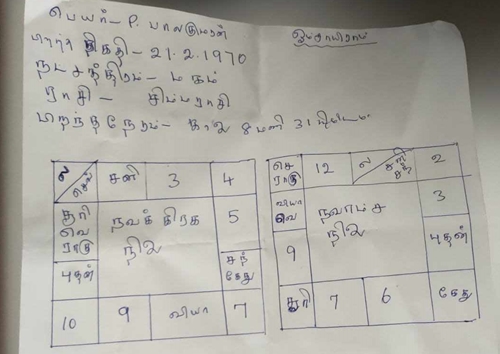 பெயர் - P. பாலகுமரன்
ஓம்சாயிராம்
பிறந்த திகதி - 21.2.1970
நட்சத்திரம் - மகம்
ராசி - சிம்மராசி
பிறந்த நேரம் - காலை 8 மணி 31 நிமிடம்
ல செவ் சனி 3 4
சூரி வெ ராகு நவக்கிரக நிலை 5
புதன் சந் கேது
10 9 வியா 7
செ ராகு 12 ல சனி சந் 2
வியா வெ நவாம்ச நிலை 3
9 புதன்
சூரி 7 6 கேது